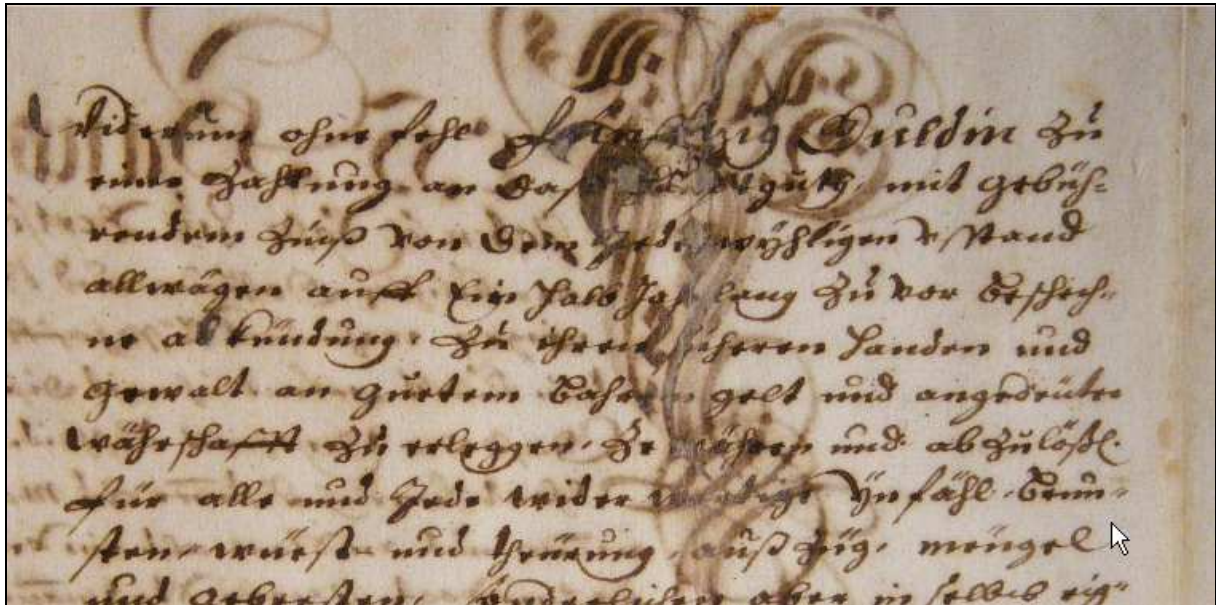 Widerum ohne fehl fünffzig Guldin zu
einer Zahlung an das haubtgutt, mit gebüh=
rendem Zinß von dem Jedewyhligen v̈sstand
allwägen auff Ein halb Jahr lang zu vor beschech=
ne abkündung. Zu ihren sicheren handen und
gewalt an guetem bahrem gelt und angedeuter
währschafft zu erleggen, ze währen und abzulößen.
für alle und Jede wider wertige ÿnfähl, brun=
sten, würst und theürung, außzüg, mengel
und gebresten, aber in selbs eig=